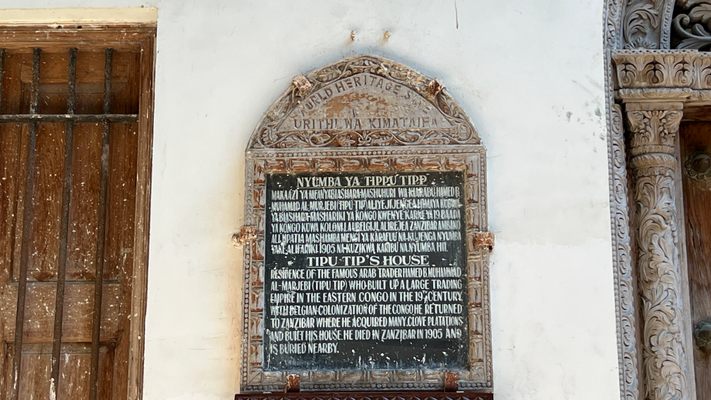 WORLD HERITAGE
URITHI WA KIMATAIFA
NYUMBA YA TIPPU TIPP
MAKAAZI YA MFANYABIASHARA MASHUHURI WA KIARABU HAMED B.
MUHAMMAD AL-MARJEBI (TIPU TIP) ALIYEJIJENGEA HIMAYA KUBWA
YA BIASHARA MASHARIKI YA KONGO KWENYE KARNE YA 19 BAADA
YA KONGO KUWA KOLONI LA UBELGIJI ALIREJEA ZANZIBAR AMBAPO
ALIJIPATIA MASHAMBA MENGI YA KARAFUU NA KUJENGA NYUMBA
HII. ALIFARIKI 1905 NA KUZIKWA KARIBU NA NYUMBA HII.
TIPU TIP'S HOUSE
RESIDENCE OF THE FAMOUS ARAB TRADER HAMED B. MUHAMMAD
AL-MARJEBI (TIPU TIP) WHO BUILT UP A LARGE TRADING
EMPIRE IN THE EASTERN CONGO IN THE 19TH CENTURY.
WITH BELGIAN COLONIZATION OF THE CONGO HE RETURNED
TO ZANZIBAR WHERE HE ACQUIRED MANY CLOVE PLATATIONS
AND BUILT HIS HOUSE. HE DIED IN ZANZIBAR IN 1905 AND
IS BURIED NEARBY.